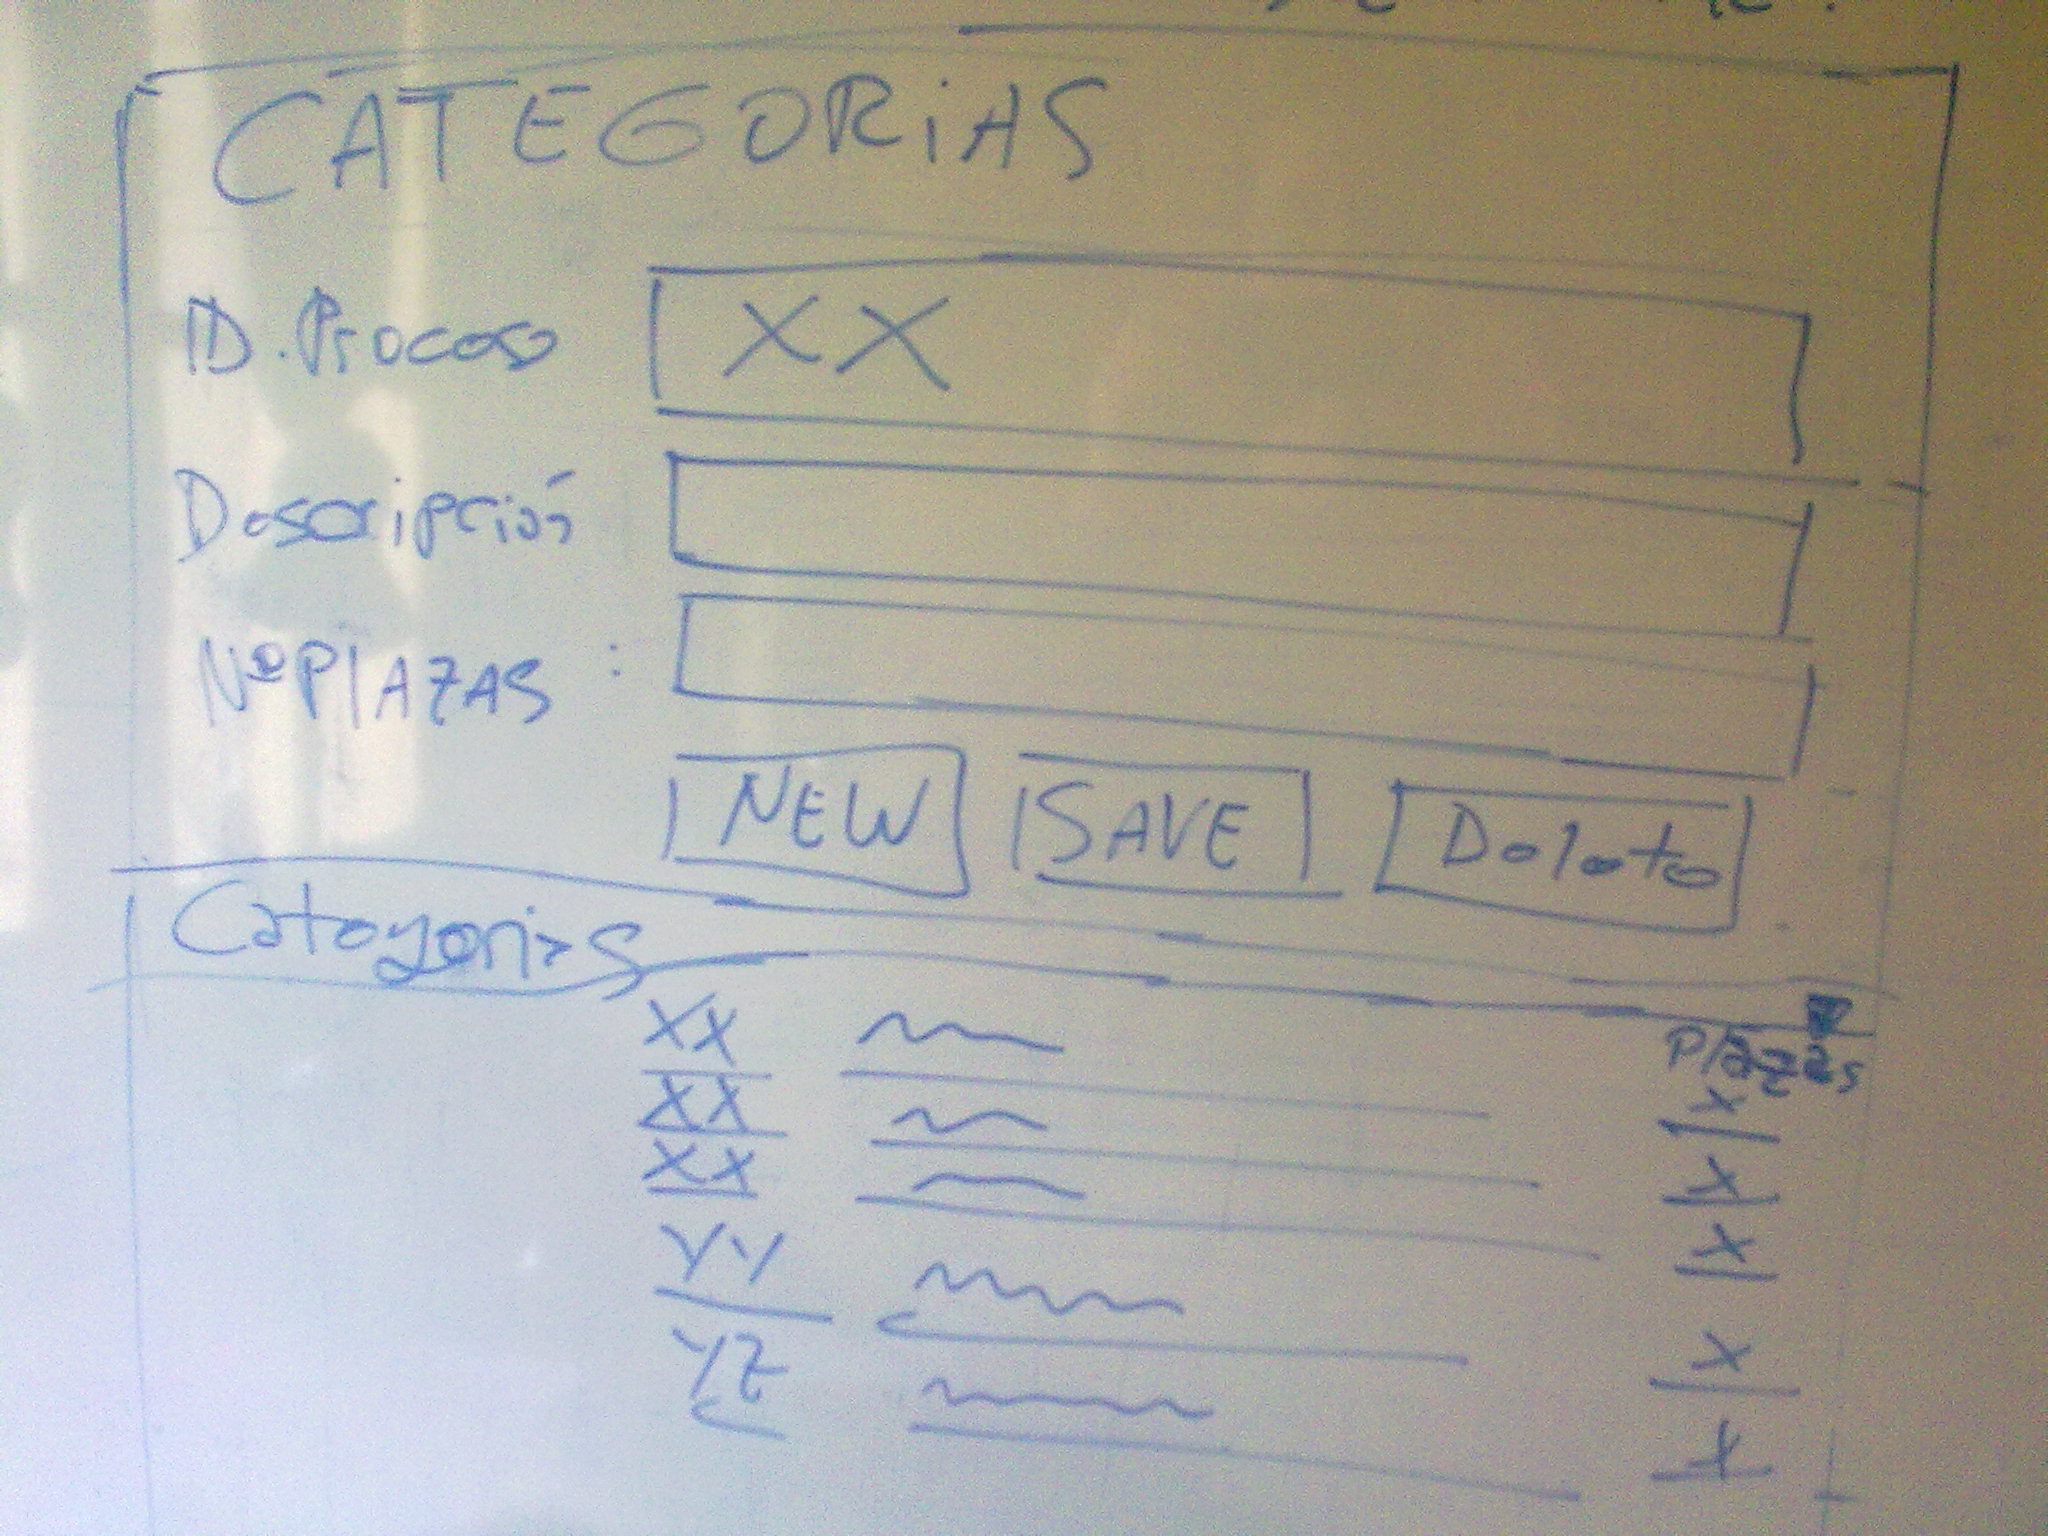 CATEGORiAS
ID. Proceso XX
Descripción
NºPlAZAS :
NEW SAVE Delete
Categorias
Plazas
XX X
XX X
XX X
YY X
YZ X